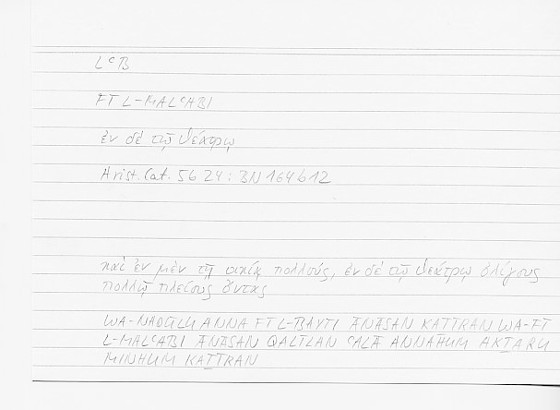 LʿB
FĪ L-MALʿABI
ἐν δὲ τῷ θεάτρῳ
Arist. Cat. 5b24 : BN 164b12
καὶ ἐν μὲν τῇ οἰκίᾳ πολλούς, ἐν δὲ τῷ θεάτρῳ ὀλίγους
πολλῷ πλείους ὄντας
WA-NAQŪLU ANNA FĪ L-BAYTI ANĀSAN KAṮĪRAN WA-FĪ
L-MALʿABI ANĀSAN QALĪLAN ʿALĀ ANNAHUM AKṮARU
MINHUM KAṮĪRAN